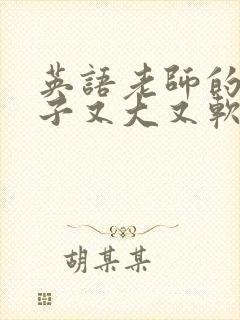 英語老師的
子又大又軟
胡某某